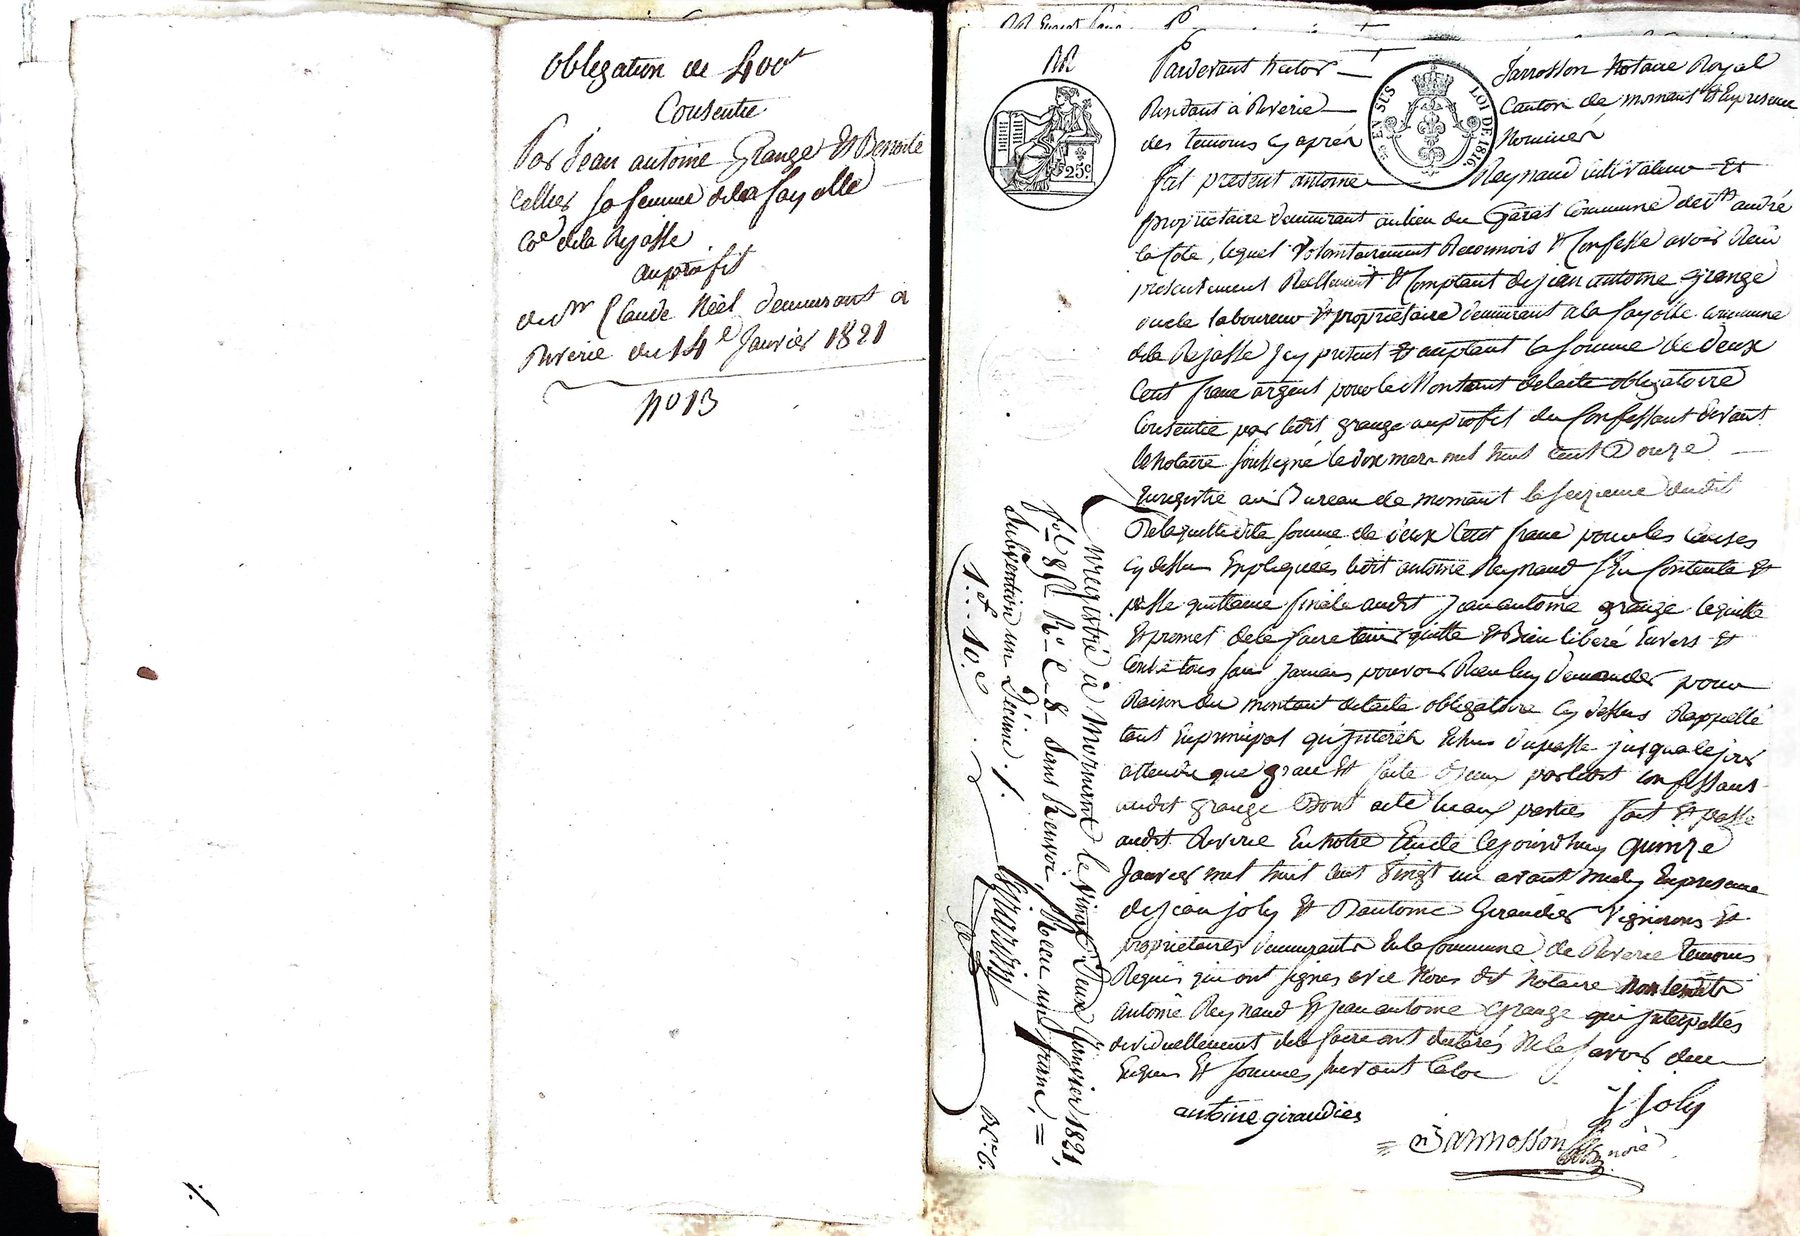 Obligation de 400f
Consentie
Par Jean antoine Grange Et Benoite
Cellier sa femme de la fayolle
Coe dela Rajasse
au profit
de Mr Claude Néel demeurant à
Riverie du 14e Janvier 1821
no 13
RR
25c
EN SUS
LOI DE 1816
Pardevant hector Jarrosson Notaire Royal
Résidant à Riverie Canton de mornant Et En presence
des temoins cy après Nommés
fut present antoine Reynaud cultivateur Et
proprietaire demeurant au lieu du Garat Commune de st andré
la Cote, lequel Volontairement Reconnois & Confesse avoir Reçu
presentement Réellement & Comptant de jean antoine grange
oncle laboureur & propriétaire demeurant a la fayolle commune
dela Rajasse Icy present & acceptant la somme de deux
Cent franc argent pour le Montant delacte obligatoire
Consentie par ledit grange au profit du Confessant devant
le Notaire soussigné le dix mars mil huit cent Douze
Enregistré au Bureau de mornant le seizieme dudit
De laquelle dite somme de deux Cent franc pour les causes
cy dessus Expliquées ledit antoine Reynaud s'En Contente Et
passe quittance finale audit Jean antoine grange lequitte
Et promet dele faire tenir quitte & Bien libéré Envers Et
Contre tous sans jamais pouvoir Rien luy demander pour
Raison du montant delacte obligatoire cy dessus Rappellé
tant En principal qu'Interêts Echus du passé jusqua ce jour
attendu que grace Est faite diceux par ledit confessant
audit grange Dont acte beaux parties fait Et passé
audit Riverie En notre Etude ce jourdhuy quinze
Janvier mil huit cent vingt un avant midy En presence
de jean joly Et D'antoine Giraudier Vignerons Et
proprietaires demeurants En la Commune de Riverie temoins
Requis qui ont signés avec Nous dit Notaire Non lesdits
antoine Reynaud Et jean antoine Grange qui Interpellés
dividuellement dele faire ont declarés Ne le savoir de ce
Enquis Et sommés suivant la loi
antoine giraudier
J Joly
Jarrosson
nore
Enregistré à Mornant le vingt Deux Janvier 1821
fol 85 Ro C 8 Sans Renvoi, Recu un franc,
Subvention un Décime
1f 10c